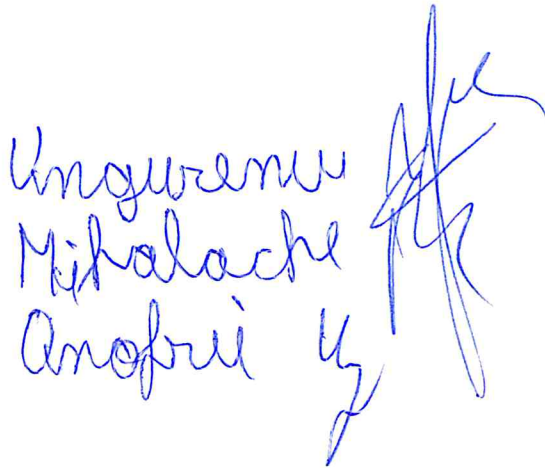 Ungurenu
Mihalache
Anofrii